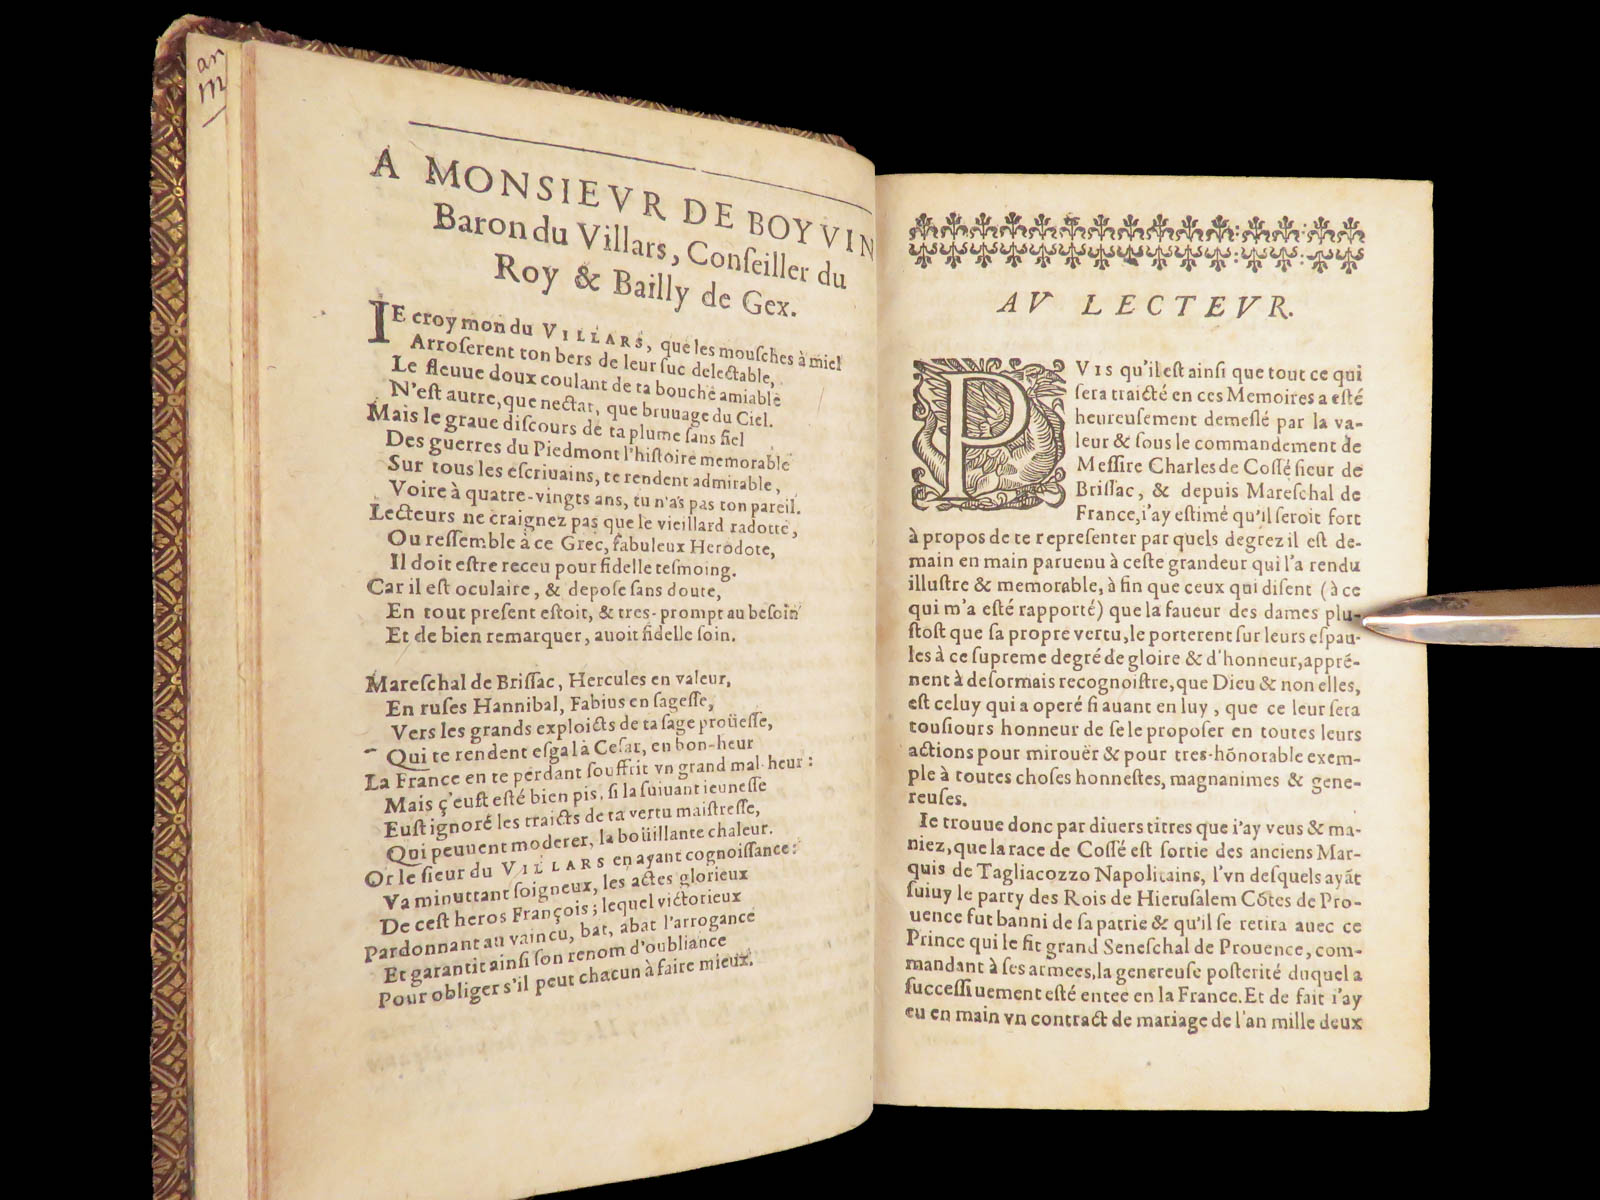 an
m
A MONSIEVR DE BOYVIN
Baron du Villars, Conſeiller du
Roy & Bailly de Gex.
IE croy mon du VILLARS, que les mouſches à miel
Arroſerent ton bers de leur ſuc delectable,
Le fleuue doux coulant de ta bouche amiable
N'eſt autre, que nectar, que bruuage du Ciel.
Mais le graue diſcours de ta plume ſans fiel
Des guerres du Piedmont l'hiſtoire memorable
Sur tous les eſcriuains, te rendent admirable,
Voire à quatre-vingts ans, tu n'as pas ton pareil.
Lecteurs ne craignez pas que le vieillard radotte,
Ou reſſemble à ce Grec, fabuleux Herodote,
Il doit eſtre receu pour fidelle teſmoing.
Car il eſt oculaire, & depoſe ſans doute,
En tout preſent eſtoit, & tres-prompt au beſoin
Et de bien remarquer, auoit fidelle ſoin.
Mareſchal de Briſſac, Hercules en valeur,
En ruſes Hannibal, Fabius en ſageſſe,
Vers les grands exploicts de ta ſage proüeſſe,
Qui te rendent eſgal à Ceſar, en bon-heur
La France en te perdant ſouffrit vn grand mal-heur:
Mais ç'euſt eſté bien pis, ſi la ſuiuant ieuneſſe
Euſt ignoré les traicts de ta vertu maiſtreſſe,
Qui peuuent moderer, la boüillante chaleur.
Or le ſieur du VILLARS en ayant cognoiſſance:
Va minuttant ſoigneux, les actes glorieux
De ceſt heros François; lequel victorieux
Pardonnant au vaincu, bat, abat l'arrogance
Et garantit ainſi ſon renom d'oubliance
Pour obliger s'il peut chacun à faire mieux.
AV LECTEVR.
PVIS qu'il eſt ainſi que tout ce qui
ſera traicté en ces Memoires a eſté
heureuſement demeſlé par la va-
leur & ſous le commandement de
Meſſire Charles de Coſſé ſieur de
Briſſac, & depuis Mareſchal de
France, i'ay eſtimé qu'il ſeroit fort
à propos de te repreſenter par quels degrez il eſt de-
main en main paruenu à ceſte grandeur qui l'a rendu
illuſtre & memorable, à fin que ceux qui diſent (à ce
qui m'a eſté rapporté) que la faueur des dames plu-
ſtoſt que ſa propre vertu, le porterent ſur leurs eſpau-
les à ce ſupreme degré de gloire & d'honneur, appré-
nent à deſormais recognoiſtre, que Dieu & non elles,
eſt celuy qui a operé ſi auant en luy, que ce leur ſera
touſiours honneur de ſe le propoſer en toutes leurs
actions pour mirouër & pour tres-hōnorable exem-
ple à toutes choſes honneſtes, magnanimes & gene-
reuſes.
Ie trouue donc par diuers titres que i'ay veus & ma-
niez, que la race de Coſſé eſt ſortie des anciens Mar-
quis de Tagliacozzo Napolitains, l'vn deſquels ayāt
ſuiuy le party des Rois de Hieruſalem Cōtes de Pro-
uence fut banni de ſa patrie & qu'il ſe retira auec ce
Prince qui le fit grand Seneſchal de Prouence, com-
mandant à ſes armees, la genereuſe poſterité duquel a
ſucceſſiuement eſté entee en la France. Et de fait i'ay
eu en main vn contract de mariage de l'an mille deux